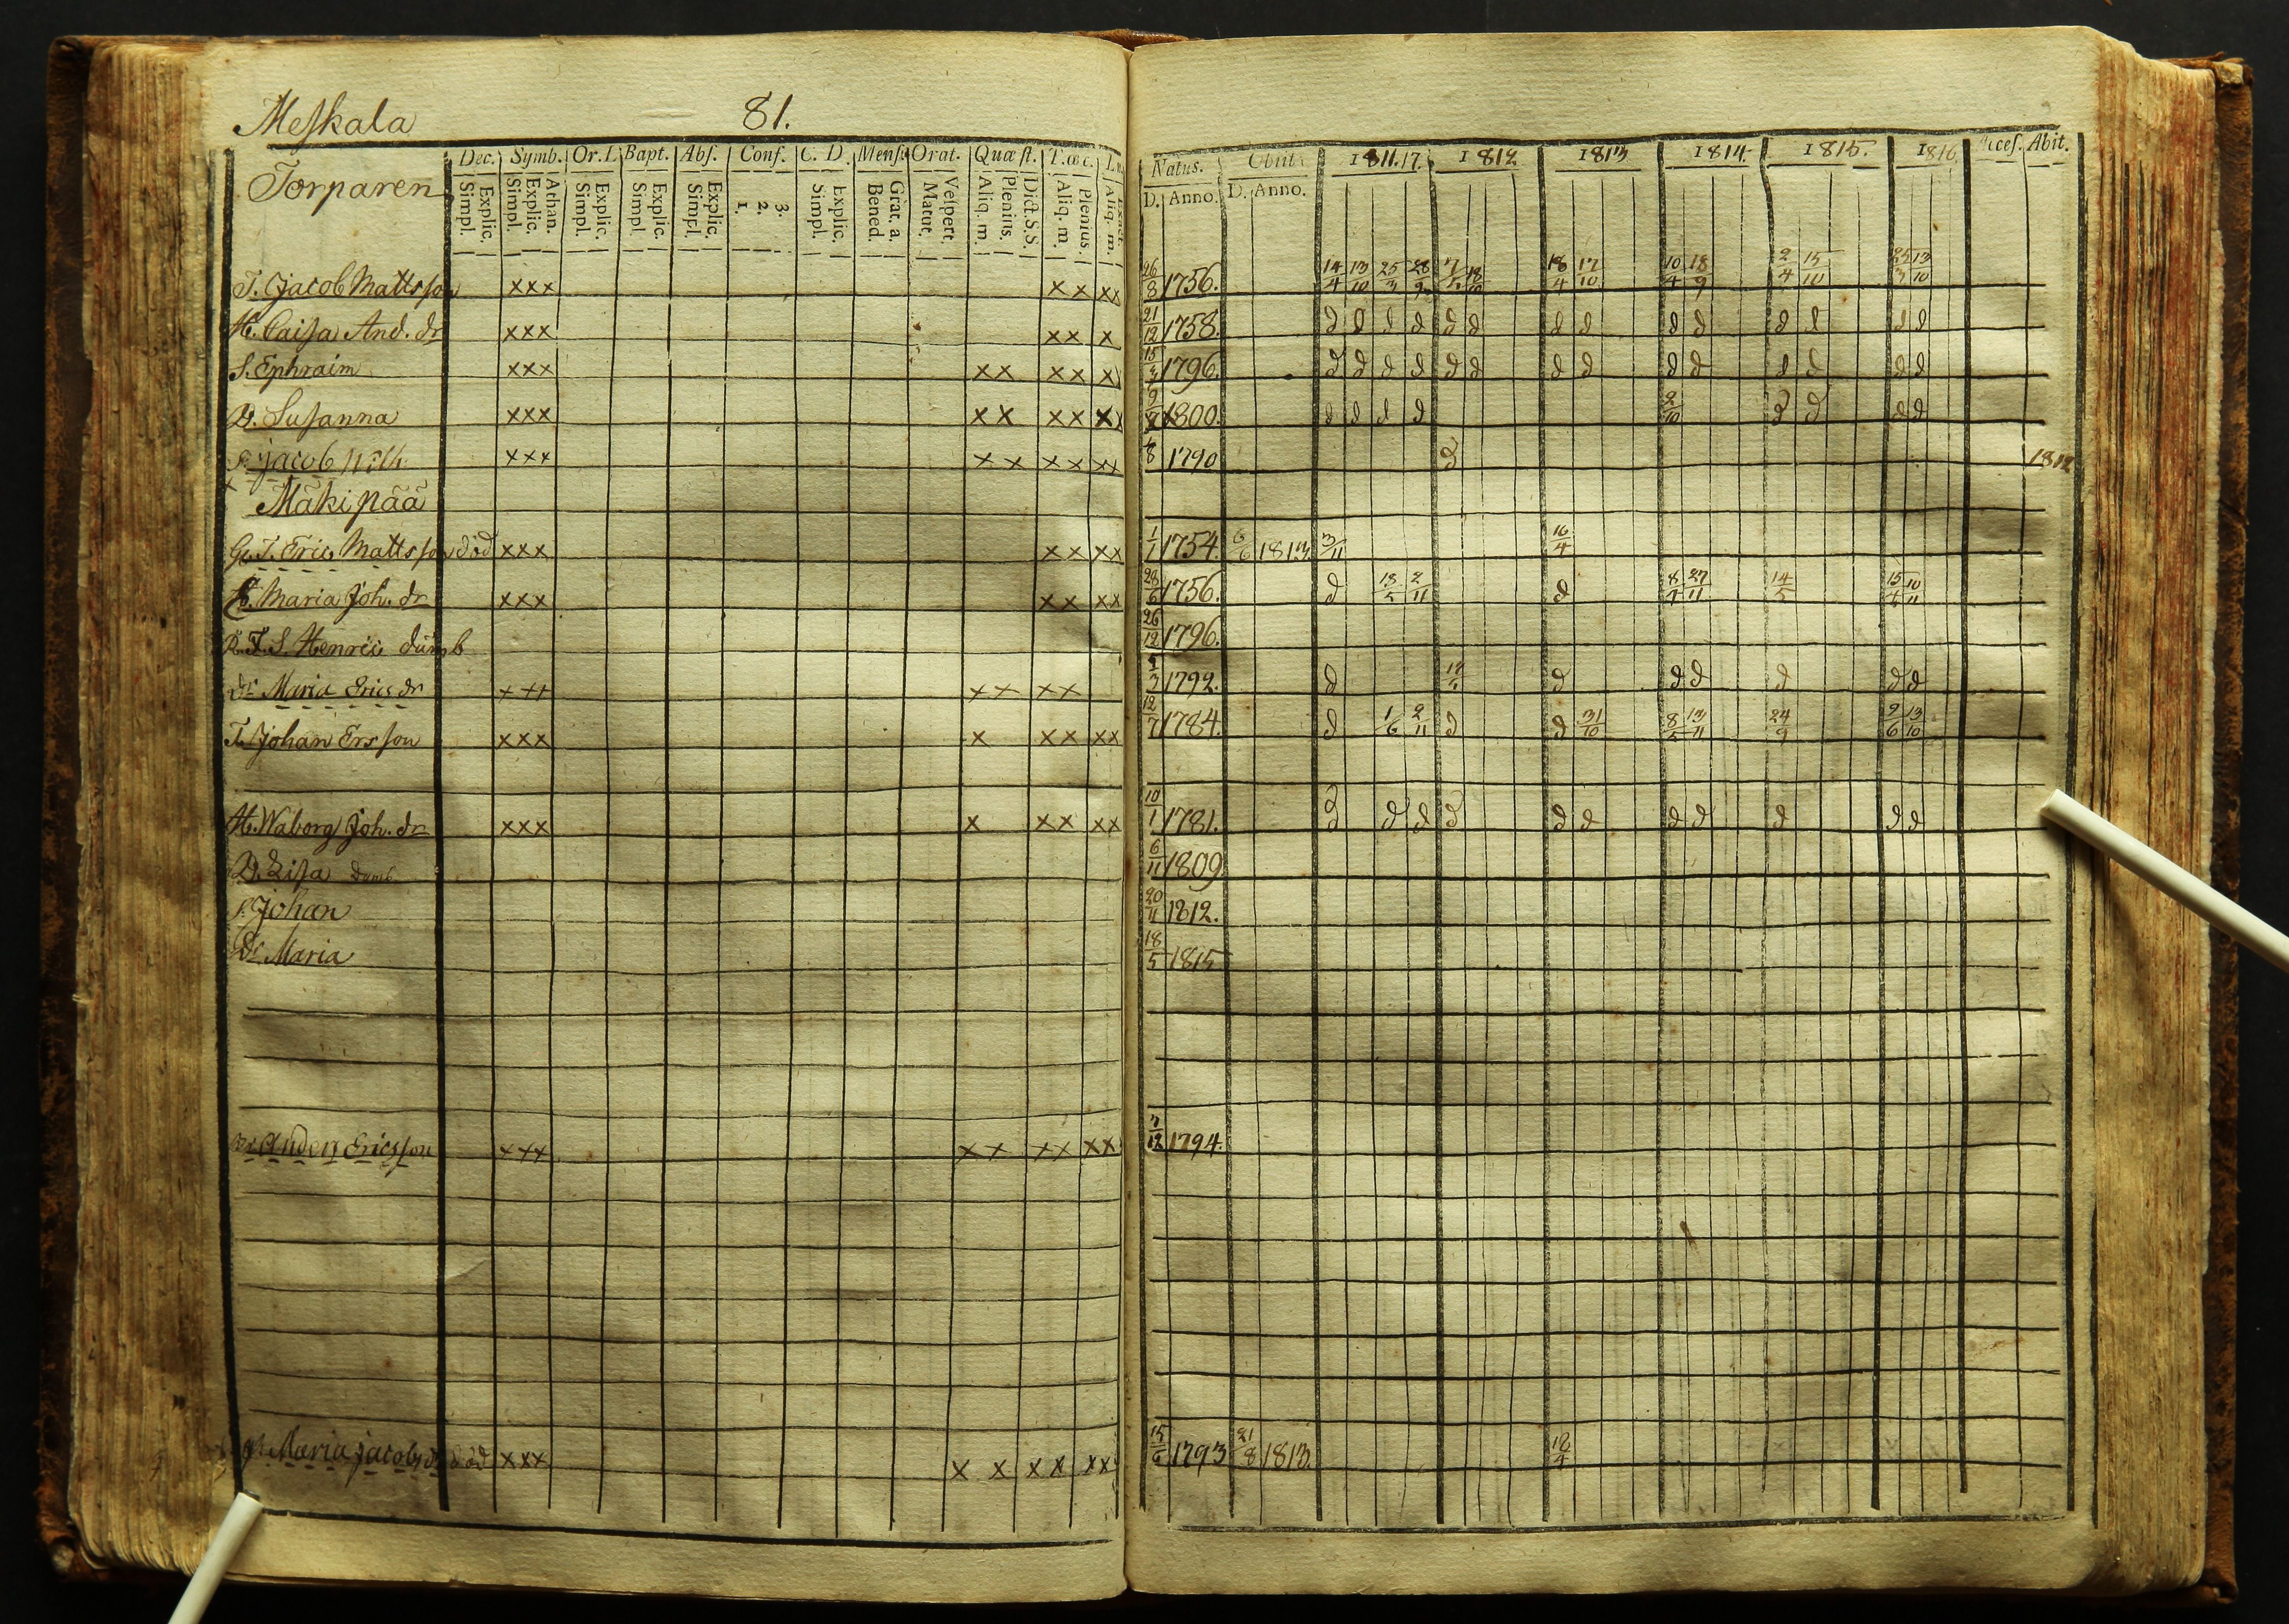 Meskala 81.
Torparen
Dec. Symb. Or. D. Bapt. Abs. Conf. C. D. Mens. Orat. Quæst. T. œc.
Explic. Simpl. Athan. Explic. Simpl. Explic. Simpl. Explic. Simpl. Explic. Simpl. 3. 2. 1. Explic. Simpl. Grat. a. Bened. Vespert. Matut. Dict. S.S. Plenius. Aliq. m. Plenius. Aliq. m. Aliq. m.
Natus. Obiit. 1811.17. 1812 1813 1814. 1815. 1816 Acces. Abit.
D. Anno. D. Anno.
T. Jacob Mattsson xxx xx xx 26/8 1756. 14/4 13/10 25/3 28/9 18/10 18/4 17/10 10/4 18/9 2/4 15/10 25/3 13/10
H. Caisa And. dr xxx xx x 21/12 1758. d d d d d d d d d d d d d d
S. Ephraim xxx xx xx x 1796. d d d d d d d d d d d d d d
D. Susanna xxx xx xx x 1800. d d d d 2/10 d d d
S. Jacob xxx xx xx xx 1790 1812
Mäkipää
G. T. Eric Mattsson död xxx xx xx 1/1 1754. 6/6 1813 3/11 16/4
H. Maria Joh. dr xxx xx xx 28/6 1756. d 2/11 d 27/11 14/5 10/11
S. Henric dumb 26/12 1796.
Dr Maria Erics dr xxx xx xx 1792. d d d d d d d
T. Johan Ersson xxx x xx xx 12/7 1784. d 1/6 2/11 d d 31/10 8/5 13/11 24/9 9/6 13/10
H. Waborg Joh. dr xxx x xx xx 10/1 1781. d d d d d d d d d d d
D. Lisa dumb 6/11 1809
S. Johan 20/11 1812.
Dr Maria 18/5 1815
Anders Ericsson xxx xx xx xx 7/12 1794.
Maria Jacobs dr död xxx x x x x xx 15/6 1793 21/8 1813. 18/4